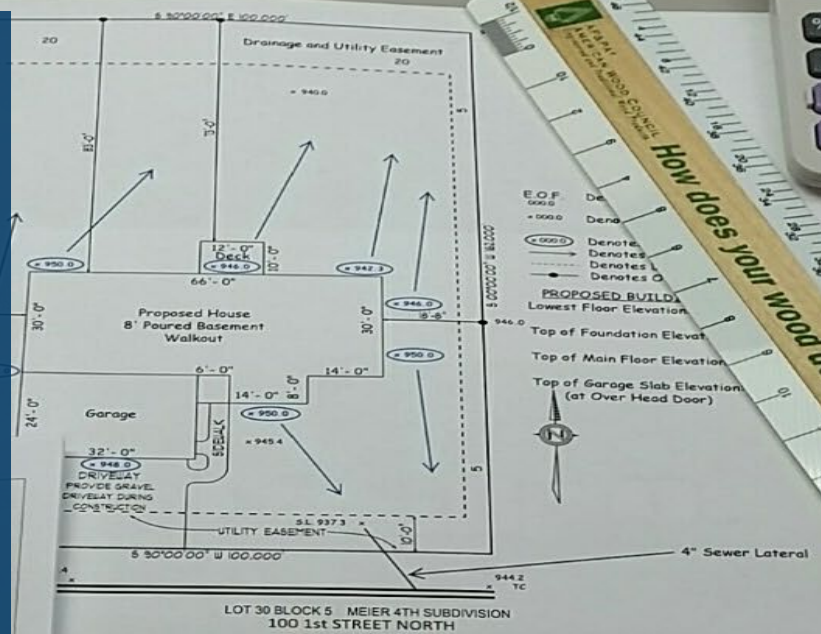 S 90°00'00" E 100.000'
20
Drainage and Utility Easement
20
× 940.0
5
83'-0"
71'-0"
12'-0"
Deck
× 946.0
10'-0"
× 950.0
× 942.3
66'-0"
Proposed House
8' Poured Basement
Walkout
30'-0"
30'-0"
× 946.0
8'-8"
946.0
× 950.0
6'-0"
14'-0"
14'-0"
8'-0"
24'-0"
Garage
SIDEWALK
× 950.0
× 945.4
32'-0"
× 948.0
DRIVEWAY
PROVIDE GRAVEL
DRIVEWAY DURING
CONSTRUCTION
5
S.L. 937.3 ×
UTILITY EASEMENT
10'-0"
S 90°00'00" W 100.000'
4" Sewer Lateral
944.2
TC
LOT 30 BLOCK 5 MEIER 4TH SUBDIVISION
100 1st STREET NORTH
E.O.F.
000.0
× 000.0
× 000.0
Denote
Denotes
Denotes
Denotes
PROPOSED BUILD
Lowest Floor Elevation
Top of Foundation Elevat
Top of Main Floor Elevation
Top of Garage Slab Elevation
(at Over Head Door)
N
AF&PA
AMERICAN WOOD COUNCIL
How does your wood